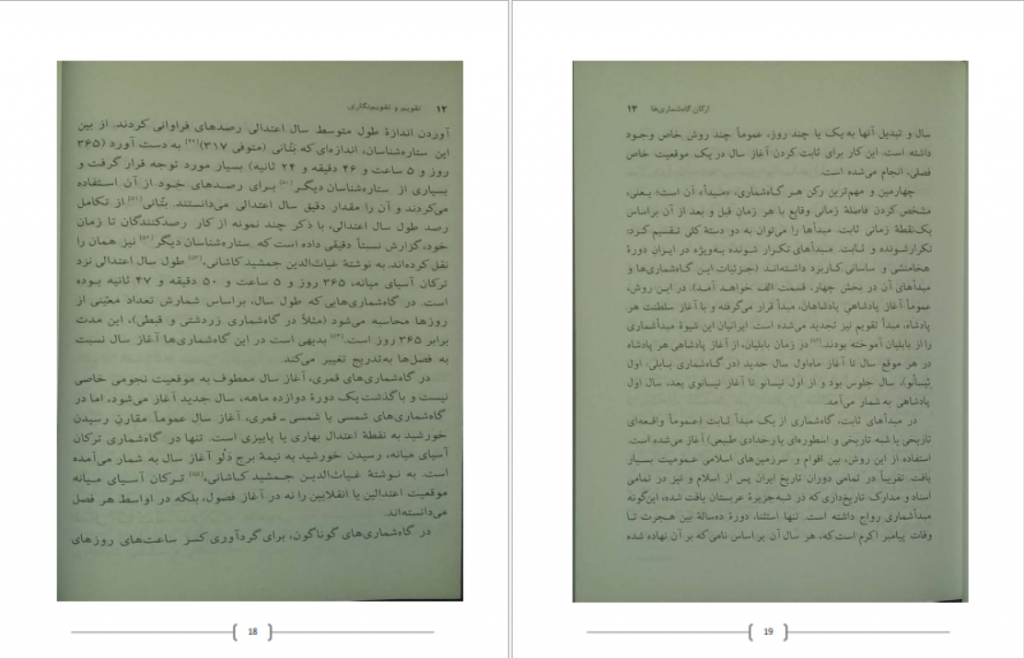 ۱۲ تقویم و تقویم‌نگاری
آوردن اندازهٔ طول متوسط سال اعتدالی رصدهای فراوانی کردند. از بین
این ستاره‌شناسان، اندازه‌ای که بَتّانی (متوفی ۳۱۷) به دست آورد (۳۶۵
روز و ۵ ساعت و ۴۶ دقیقه و ۲۴ ثانیه) بسیار مورد توجه قرار گرفت و
بسیاری از ستاره‌شناسان دیگر برای رصدهای خود از آن استفاده
می‌کردند و آن را مقدار دقیق سال اعتدالی می‌دانستند. بتّانی از تکامل
رصد طول سال اعتدالی، با ذکر چند نمونه از کار رصدکنندگان تا زمان
خود، گزارش نسبتاً دقیقی داده است که ستاره‌شناسان دیگر نیز همان را
نقل کرده‌اند. به نوشتهٔ غیاث‌الدین جمشید کاشانی، طول سال اعتدالی نزد
ترکان آسیای میانه، ۳۶۵ روز و ۵ ساعت و ۵۰ دقیقه و ۴۷ ثانیه بوده
است. در گاه‌شماری‌هایی که طول سال، براساس شمارش تعداد معیّنی از
روزها محاسبه می‌شود (مثلاً در گاه‌شماری زردشتی و قبطی)، این مدت
برابر ۳۶۵ روز است. بدیهی است در این گاه‌شماری‌ها آغاز سال نسبت
به فصل‌ها به‌تدریج تغییر می‌کند.
در گاه‌شماری‌های قمری، آغاز سال معطوف به موقعیت نجومی خاصی
نیست و با گذشت یک دورهٔ دوازده ماهه، سال جدید آغاز می‌شود، اما در
گاه‌شماری‌های شمسی یا شمسی ـ قمری، آغاز سال عموماً مقارنِ رسیدن
خورشید به نقطهٔ اعتدال بهاری یا پاییزی است. تنها در گاه‌شماری ترکان
آسیای میانه، رسیدن خورشید به نیمهٔ برج دَلْو آغاز سال به شمار می‌آمده
است. به نوشتهٔ غیاث‌الدین جمشید کاشانی، ترکان آسیای میانه
موقعیت اعتدالین یا انقلابین را نه در آغاز فصول، بلکه در اواسط هر فصل
می‌دانسته‌اند.
در گاه‌شماری‌های گوناگون، برای گردآوری کسر ساعت‌های روزهای
18
ارکان گاه‌شماری‌ها ۱۳
سال و تبدیل آنها به یک یا چند روز، عموماً چند روش خاص وجود
داشته است. این کار برای ثابت کردن آغاز سال در یک موقعیت خاص
فصلی، انجام می‌شده است.
چهارمین و مهم‌ترین رکن هر گاه‌شماری، «مبدأ» آن است؛ یعنی،
مشخص کردن فاصلهٔ زمانی وقایع با هر زمانِ قبل و بعد از آن براساس
یک نقطهٔ زمانی ثابت. مبدأها را می‌توان به دو دستهٔ کلی تقسیم کرد:
تکرارشونده و ثابت. مبدءهای تکرار شونده به‌ویژه در ایرانِ دورهٔ
هخامنشی و ساسانی کاربرد داشته‌اند (جزئیات این گاه‌شماری‌ها و
مبدأهای آن در بخش چهار، قسمت الف خواهد آمد). در این روش،
عموماً آغاز پادشاهی پادشاهان، مبدأ قرار می‌گرفته و با آغاز سلطنت هر
پادشاه، مبدأ تقویم نیز تجدید می‌شده است. ایرانیان این شیوهٔ مبدأشماری
را از بابلیان آموخته بودند. در زمان بابلیان، از آغاز پادشاهی هر پادشاه
در هر موقع سال تا آغاز ماه‌اول سال جدید (در گاه‌شماری بابلی، اول
نیسانو)، سال جلوس بود و از اول نیسانو تا آغاز نیسانوی بعد، سال اول
پادشاهی به شمار می‌آمد.
در مبدأهای ثابت، گاه‌شماری از یک مبدأ ثابت (عموماً واقعه‌ای
تاریخی یا شبه تاریخی و اسطوره‌ای یا رخدادی طبیعی) آغاز می‌شده است.
استفاده از این روش، بین اقوام و سرزمین‌های اسلامی عمومیت بسیار
یافت. تقریباً در تمامی دوران تاریخ ایران پس از اسلام و نیز در تمامی
اسناد و مدارک تاریخ‌داری که در شبه‌جزیرهٔ عربستان یافت شده، این‌گونه
مبدأشماری رواج داشته است. تنها استثنا، دورهٔ ده‌سالهٔ بین هجرت تا
وفات پیامبر اکرم است‌که، هر سال آن براساس نامی‌که بر آن نهاده شده
19